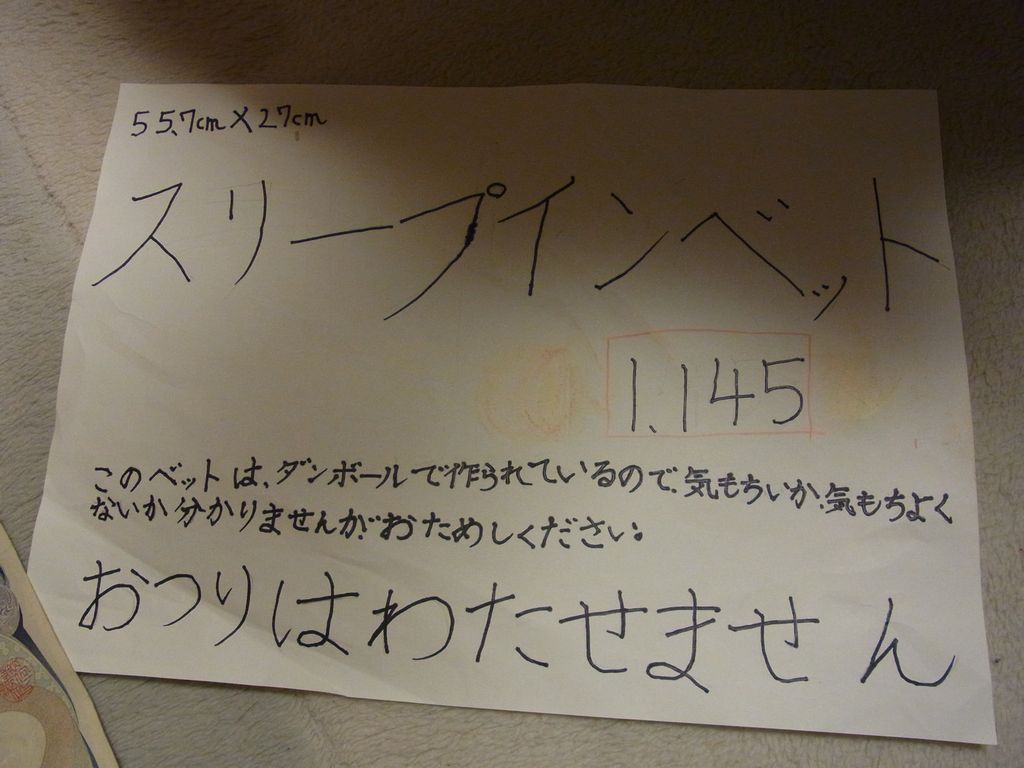 55.7cm×27cm
スリープインベット
1.145
このベットは、ダンボールで作られているので、気もちいか、気もちよく
ないか分かりませんが、おためしください。
おつりはわたせません